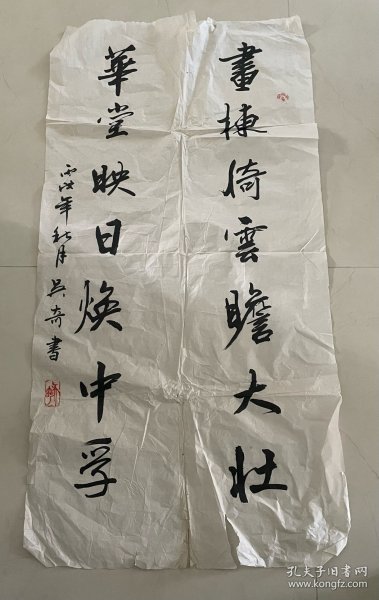 畫棟倚雲瞻大壯
華堂映日煥中孚
丙戌年秋月 吳奇書
孔夫子旧书网
www.kongfz.com